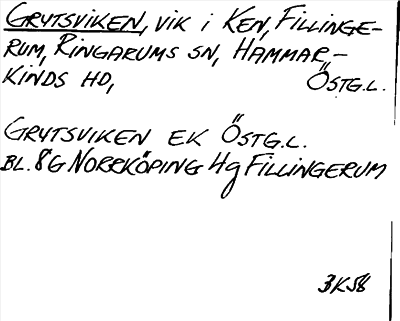 GRYTSVIKEN, VIK I KEN, FILLINGE-
RUM, RINGARUMS SN, HAMMAR-
KINDS HD, ÖSTG.L.
GRYTSVIKEN EK ÖSTG.L.
BL. 8G NORRKÖPING 4g FILLINGERUM
3K58